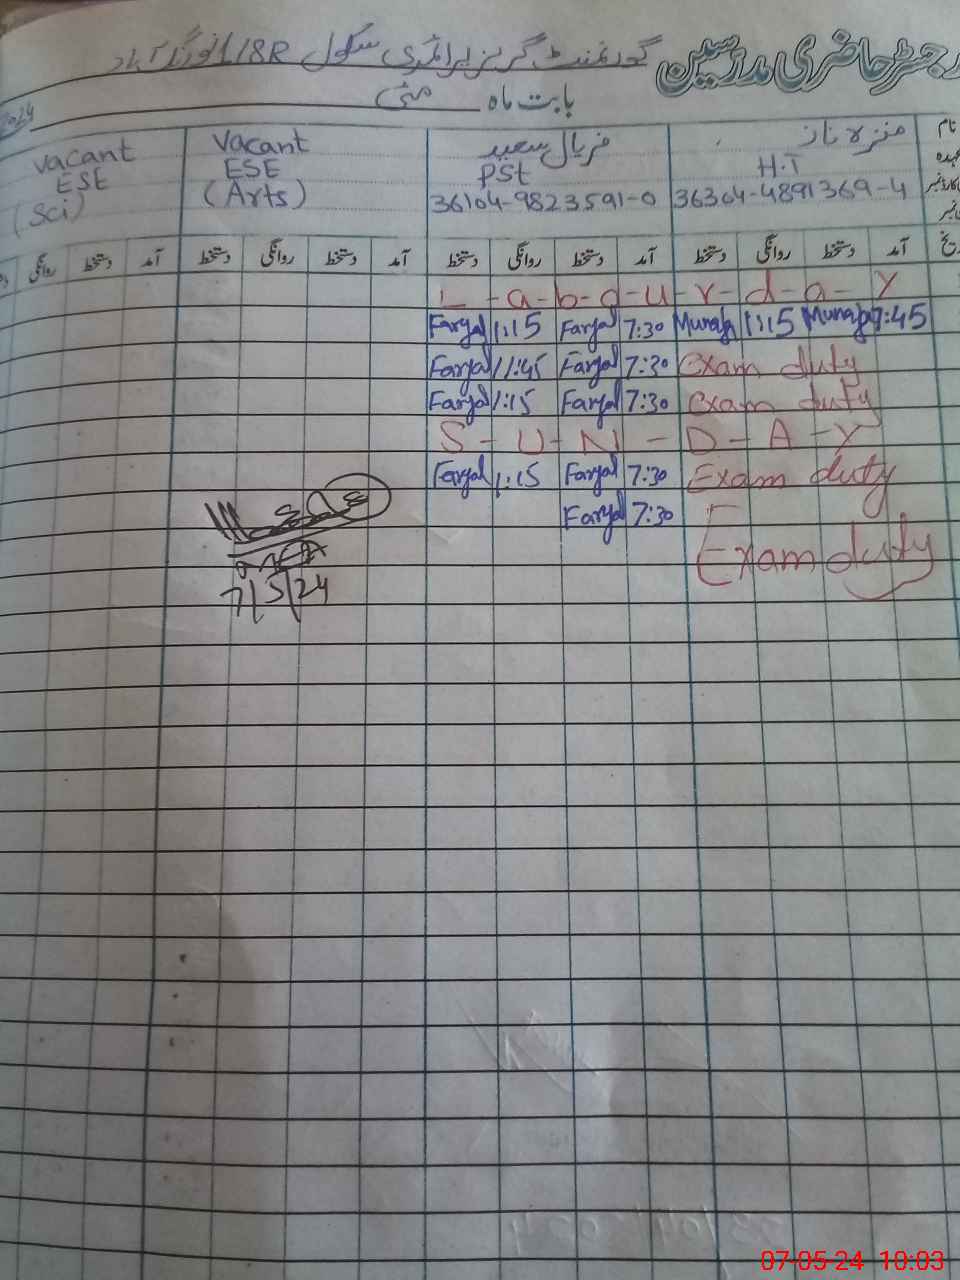 رجسٹر حاضری مدرسین گورنمنٹ گرلز پرائمری سکول 118R
بابت ماہ مئی 2024
نام منزہ ناز فریال سعید Vacant Vacant
عہدہ H.T PSt ESE ESE
36304-4891369-4 36104-9823591-0 (Arts) (Sci)
آمد دستخط روانگی دستخط آمد دستخط روانگی دستخط آمد دستخط روانگی دستخط آمد دستخط روانگی
L-a-b-o-u-r-d-a-y
Faryal 1:15 Faryal 7:30 Munaza 1:15 Munaza 7:45
Faryal 11:45 Faryal 7:30 Exam duty
Faryal 1:15 Faryal 7:30 Exam duty
S-U-N-D-A-Y
Faryal 1:15 Faryal 7:30 Exam duty
Faryal 7:30
Exam duty
7/5/24
07-05-24 10:03